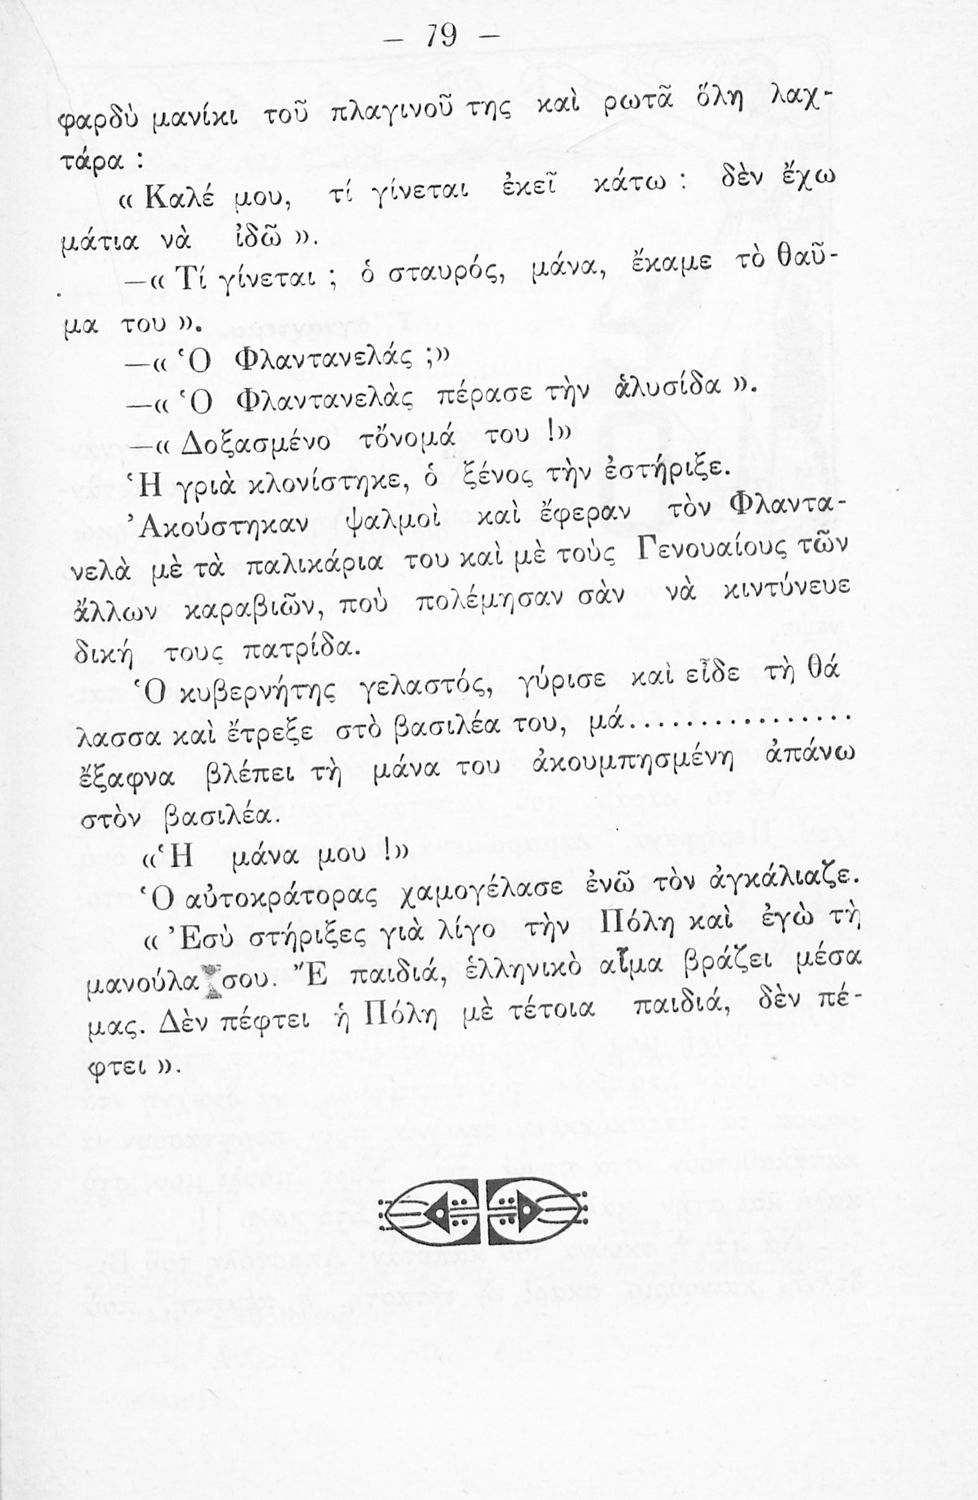 — 79 —
φαρδὺ μανίκι τοῦ πλαγινοῦ της καὶ ρωτᾶ ὅλη λαχ-
τάρα :
« Καλέ μου, τί γίνεται ἐκεῖ κάτω : δὲν ἔχω
μάτια νὰ ἰδῶ ».
—« Τί γίνεται ; ὁ σταυρός, μάνα, ἔκαμε τὸ θαῦ-
μα του ».
—« Ὁ Φλαντανελάς ;»
—« Ὁ Φλαντανελὰς πέρασε τὴν ἁλυσίδα ».
—« Δοξασμένο τὄνομά του !»
Ἡ γριὰ κλονίστηκε, ὁ ξένος τὴν ἐστήριξε.
Ἀκούστηκαν ψαλμοὶ καὶ ἔφεραν τὸν Φλαντα-
νελὰ μὲ τὰ παλικάρια του καὶ μὲ τοὺς Γενουαίους τῶν
ἄλλων καραβιῶν, ποὺ πολέμησαν σὰν νὰ κιντύνευε
δική τους πατρίδα.
Ὁ κυβερνήτης γελαστός, γύρισε καὶ εἶδε τὴ θά
λασσα καὶ ἔτρεξε στὸ βασιλέα του, μά................
ἔξαφνα βλέπει τὴ μάνα του ἀκουμπησμένη ἀπάνω
στὸν βασιλέα.
«Ἡ μάνα μου !»
Ὁ αὐτοκράτορας χαμογέλασε ἐνῶ τὸν ἀγκάλιαζε.
« Ἐσὺ στήριξες γιὰ λίγο τὴν Πόλη καὶ ἐγὼ τὴ
μανούλα σου. Ἒ παιδιά, ἑλληνικὸ αἷμα βράζει μέσα
μας. Δὲν πέφτει ἡ Πόλη μὲ τέτοια παιδιά, δὲν πέ-
φτει ».